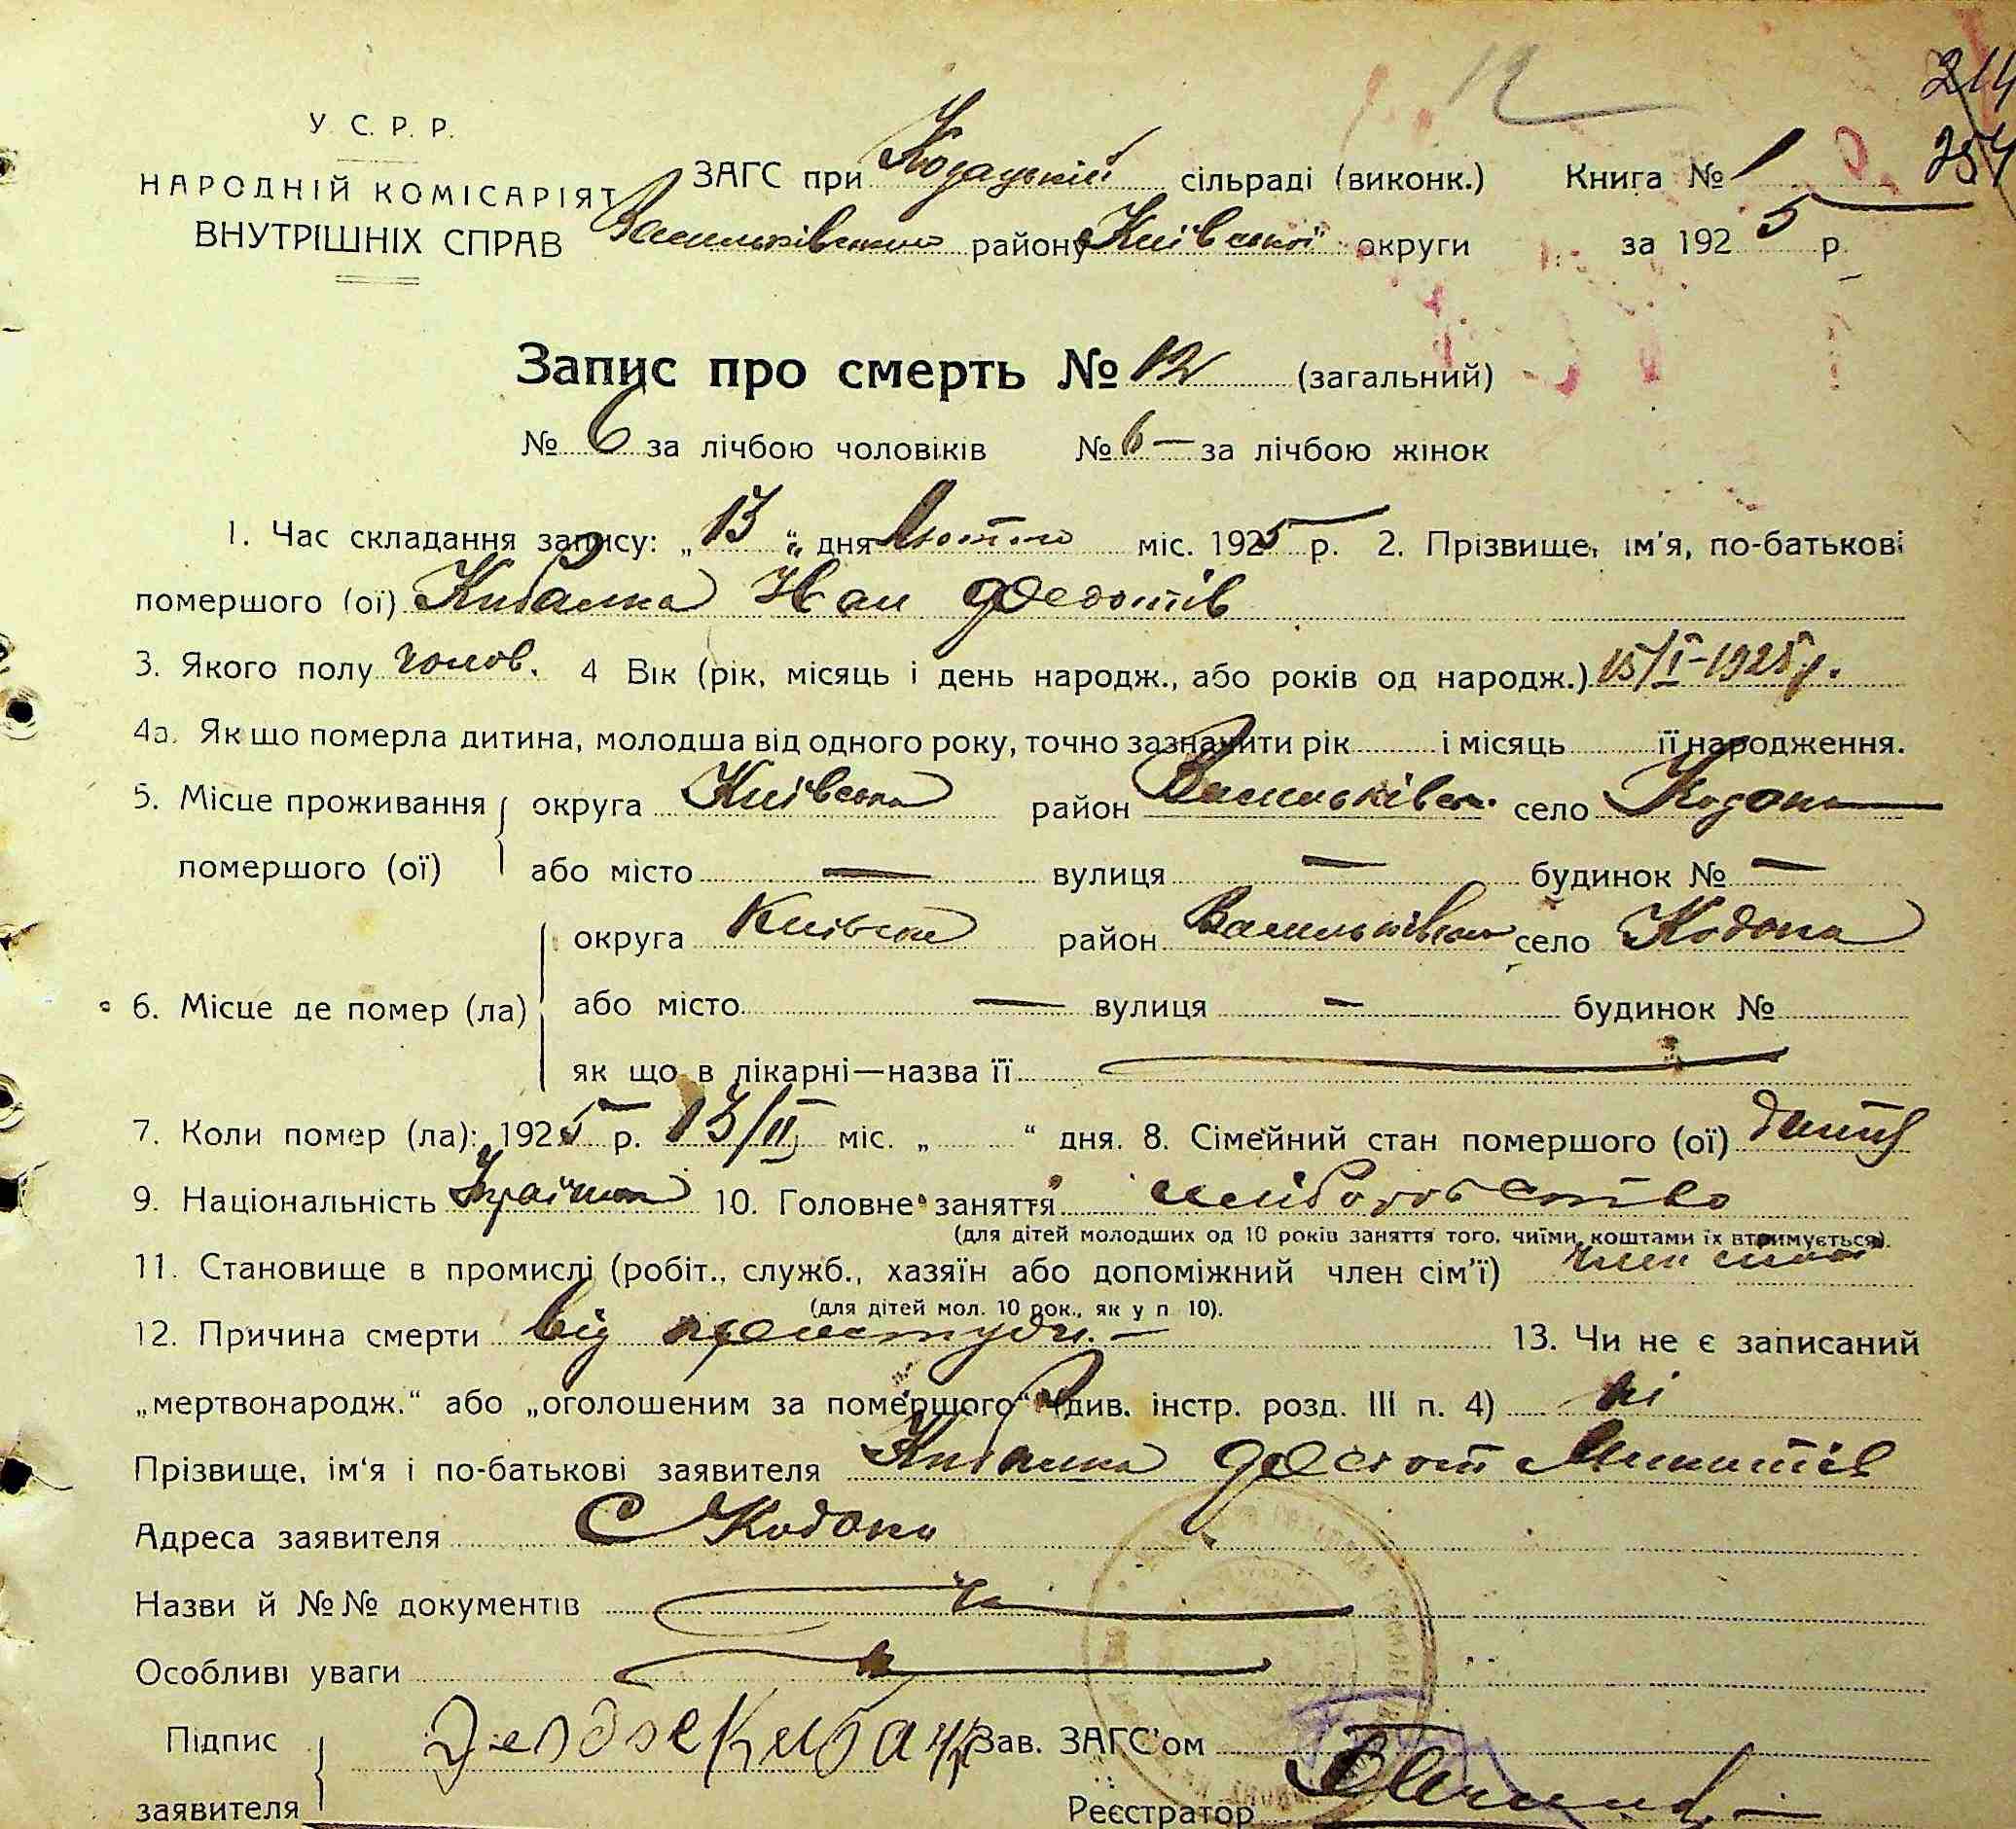 12
214
254
У. С. Р. Р.
НАРОДНІЙ КОМІСАРІЯТ
ВНУТРІШНІХ СПРАВ
ЗАГС при Кодацькій сільраді (виконк.) Книга № 1
Васильківського району Київської округи за 1925 р.
Запис про смерть № 12 (загальний)
№ 6 за лічбою чоловіків № 6 — за лічбою жінок
1. Час складання запису: „13“ дня Лютого міс. 1925 р. 2. Прізвище, ім'я, по-батькові
помершого (ої) Кибалка Іван Федотів
3. Якого полу чолов. 4 Вік (рік, місяць і день народж., або років од народж.) 15/I-1925 р.
4а. Як що померла дитина, молодша від одного року, точно зазначити рік і місяць її народження.
5. Місце проживання округа Київська район Васильківськ. село Кодаки
помершого (ої) або місто — вулиця — будинок № —
округа Київська район Васильківськ село Кодаки
6. Місце де помер (ла) або місто — вулиця — будинок №
як що в лікарні—назва її —
7. Коли помер (ла): 1925 р. 13/II міс. „ “ дня. 8. Сімейний стан помершого (ої)
9. Національність 10. Головне заняття хліборобство
(для дітей молодших од 10 років заняття того, чиїми коштами їх втримується).
11. Становище в промислі (робіт., служб., хазяїн або допоміжний член сім'ї) член сімї
(для дітей мол. 10 рок., як у п 10).
12. Причина смерти від простуди. — 13. Чи не є записаний
„мертвонародж.“ або „оголошеним за померщого“ (див. інстр. розд. III п. 4) ні
Прізвище, ім'я і по-батькові заявителя Кибалка Федот Микитів
Адреса заявителя С Кодаки
Назви й №№ документів
Особливі уваги
Підпис Зав. ЗАГС'ом
заявителя Реєстратор